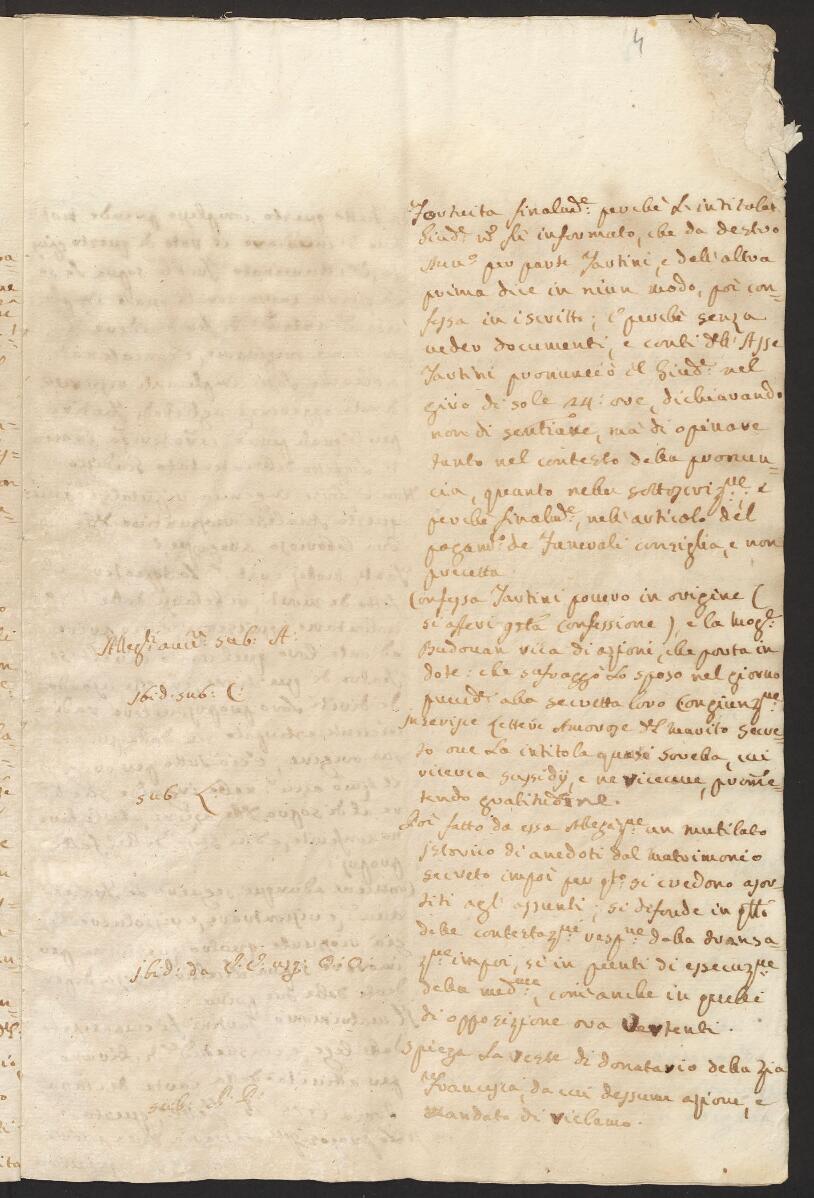 4
finalmde: perchè l'intitolat
Giudce si informato, che da destro
per parte Tartini, e dell'altra
prima dice in niun modo, poi con-
fessa in iscritto; e perchè senza
veder documenti, e conti dell'Asse
Tartini pronunciò il Giudce nel
giro di sole 24: ore, dichiarando
non di sentiare, ma di opinare
tanto nel contesto della pronun-
cia, quanto nella sottoscrizne, e
perchè finalmde, nell'articolo del
pagamto de Funerali consiglia, e non
precetta.
Confessa Tartini povero in origine (
si afferi qsta Confessione), e la Mogle
rica di azioni, che porta in
dote: che lo sposo nel giorno
preced: alla secretta loro Congiunzne.
Allegti sub: A:
Ibid: sub: C:
Inserisce Lettere Amorose del Marito Secre-
to ove la intitola quasi sorella, cui
ricerca sussidij, e ne riceve, promet-
tendo gratitudine.
sub:
Poi fatto da essa Allegazne un mutilato
Istorico di anedoti dal matrimonio
secreto impoi per qto si credono asor-
titi agl'assunti; si difonde in qllo
delle contestazne respne dalla transa
zne impoi, sì in punti di essecuzne
della medma, com'anche in quelli
di opposizione ora vertenti.
Ibid: da
Spiega la veste di donatario della Zia
Francesca, da cui dessume azione, e
mandato di reclamo.
sub: